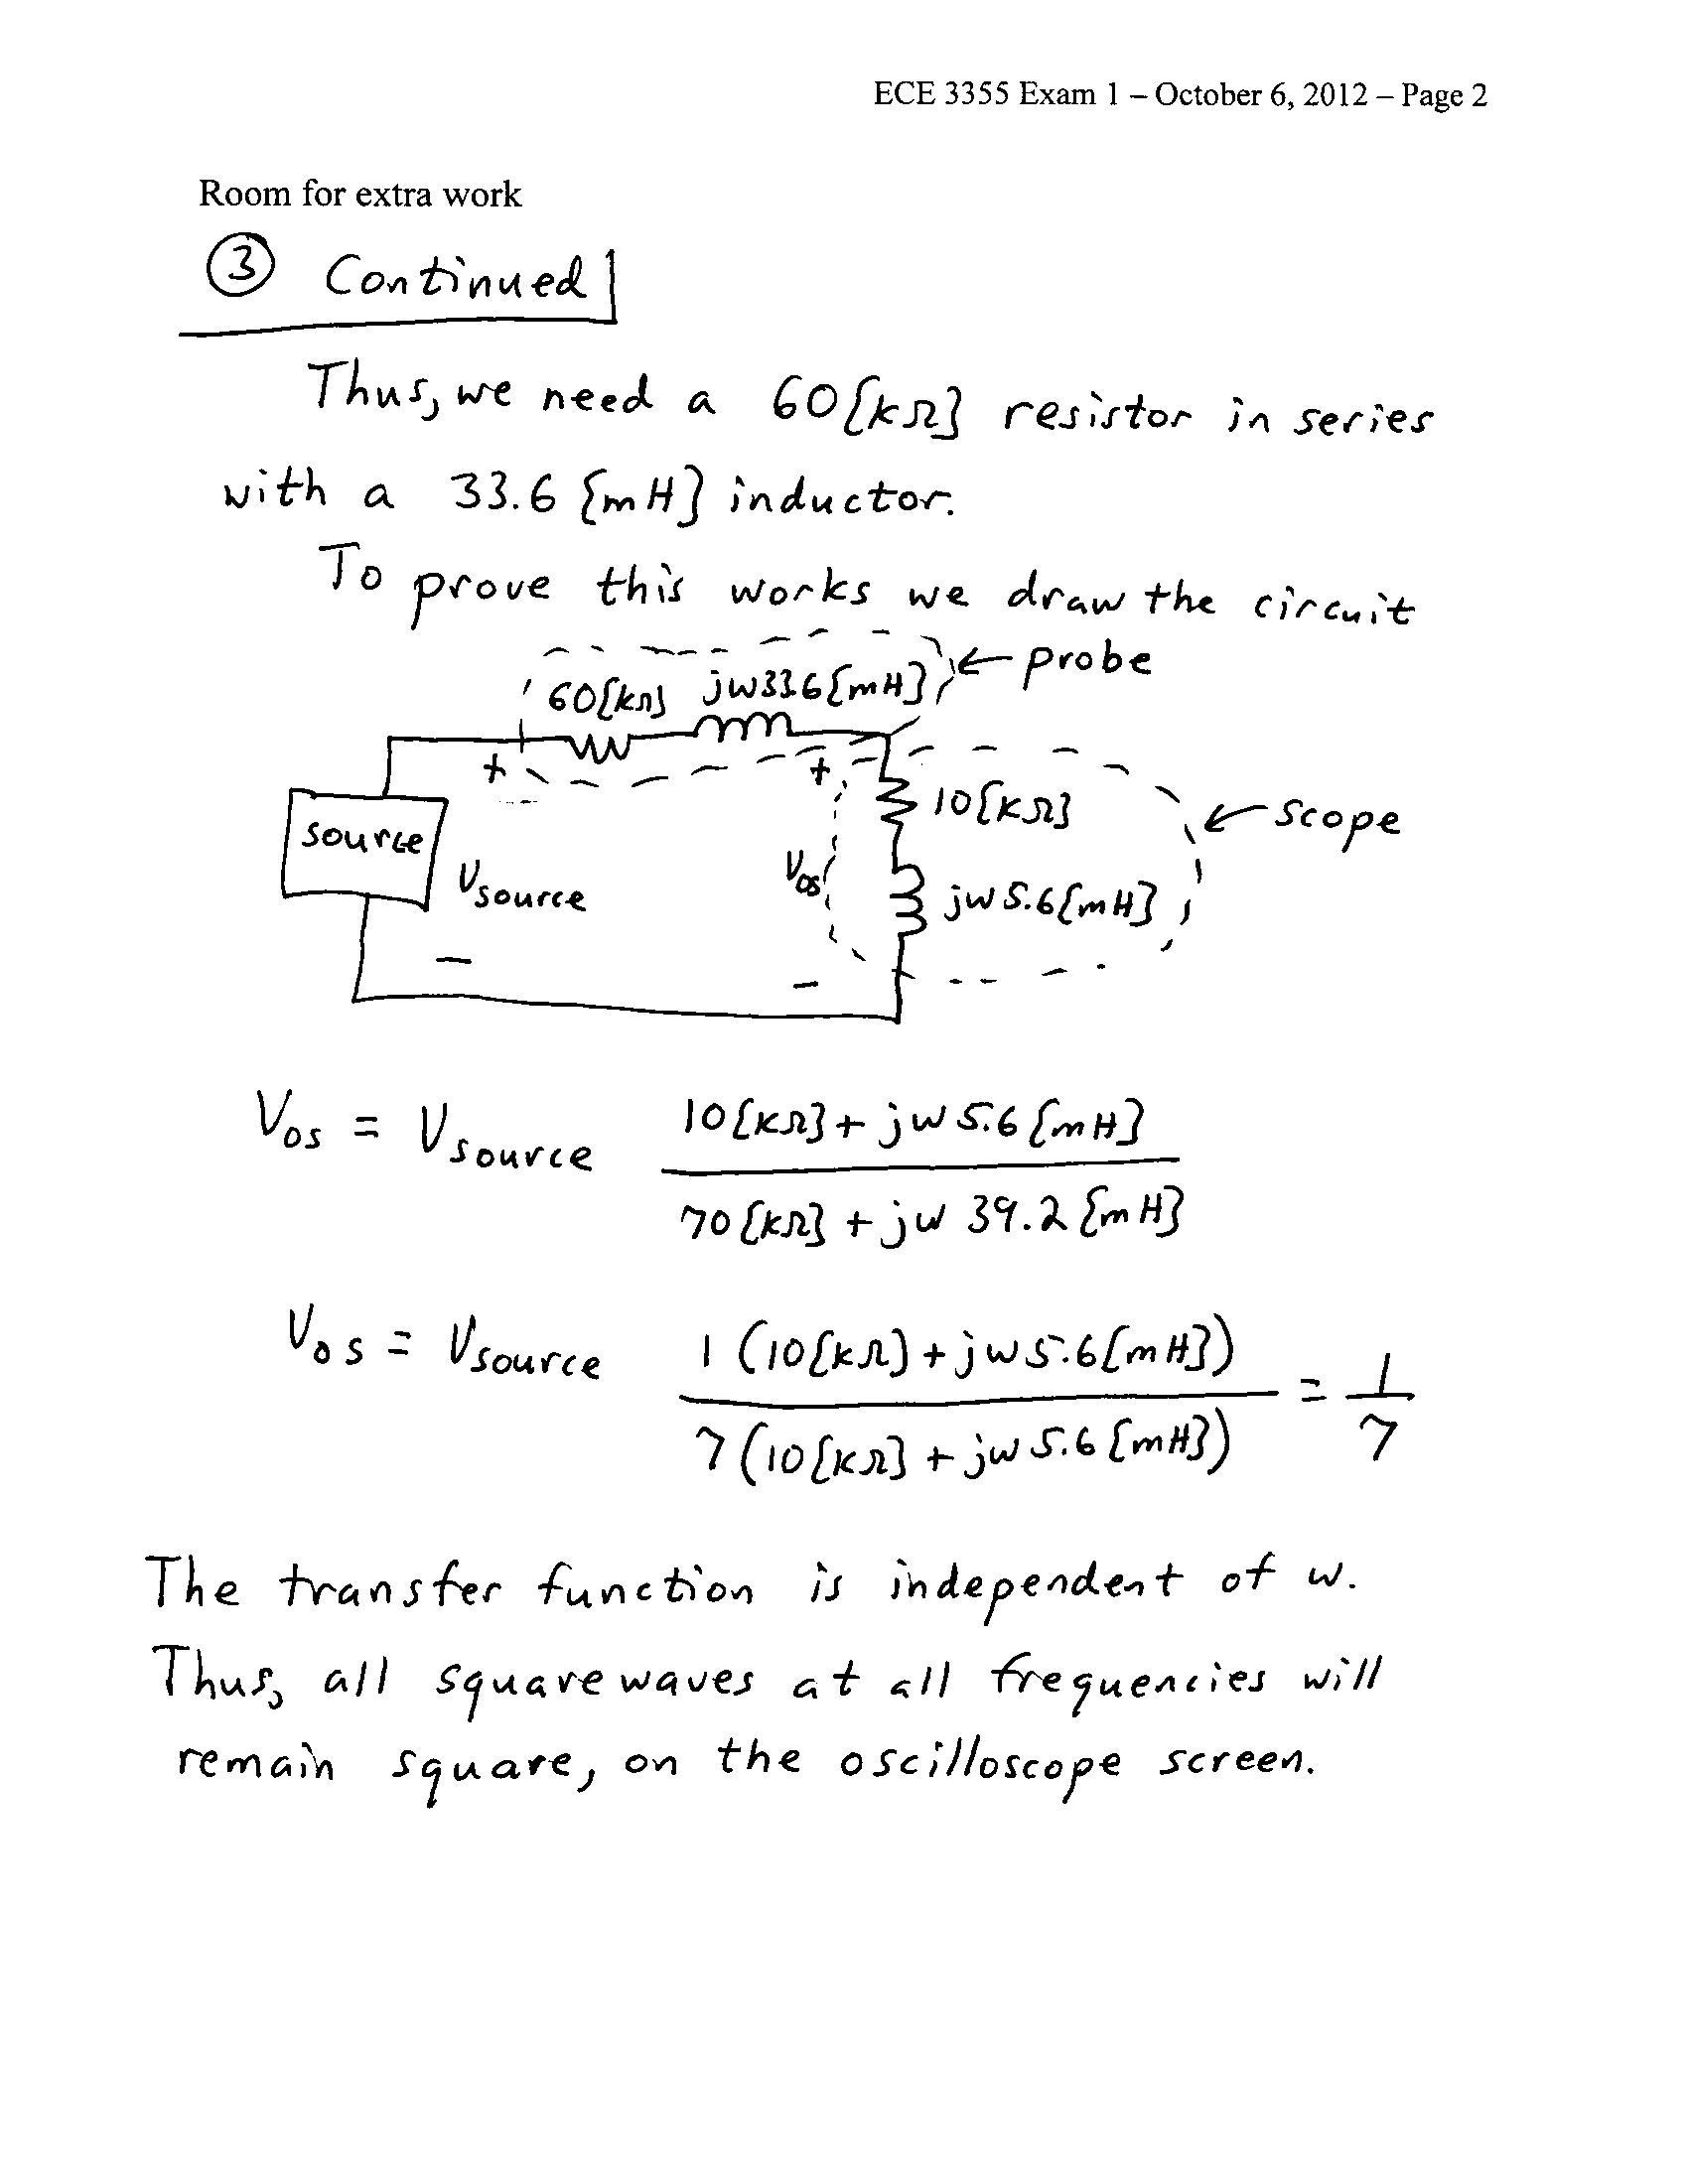 ECE 3355 Exam 1 – October 6, 2012 – Page 2
Room for extra work
③ Continued
Thus, we need a 60[kΩ] resistor in series
with a 33.6 [mH] inductor.
To prove this works we draw the circuit
probe
60[kΩ] jω33.6[mH]
+ +
10[kΩ]
scope
source
Vsource
Vos
jω5.6[mH]
− −
Vos = Vsource 10[kΩ] + jω5.6[mH]
70[kΩ] + jω 39.2[mH]
Vos = Vsource 1 (10[kΩ] + jω5.6[mH]) = 1
7 (10[kΩ] + jω5.6[mH]) 7
The transfer function is independent of ω.
Thus, all squarewaves at all frequencies will
remain square, on the oscilloscope screen.